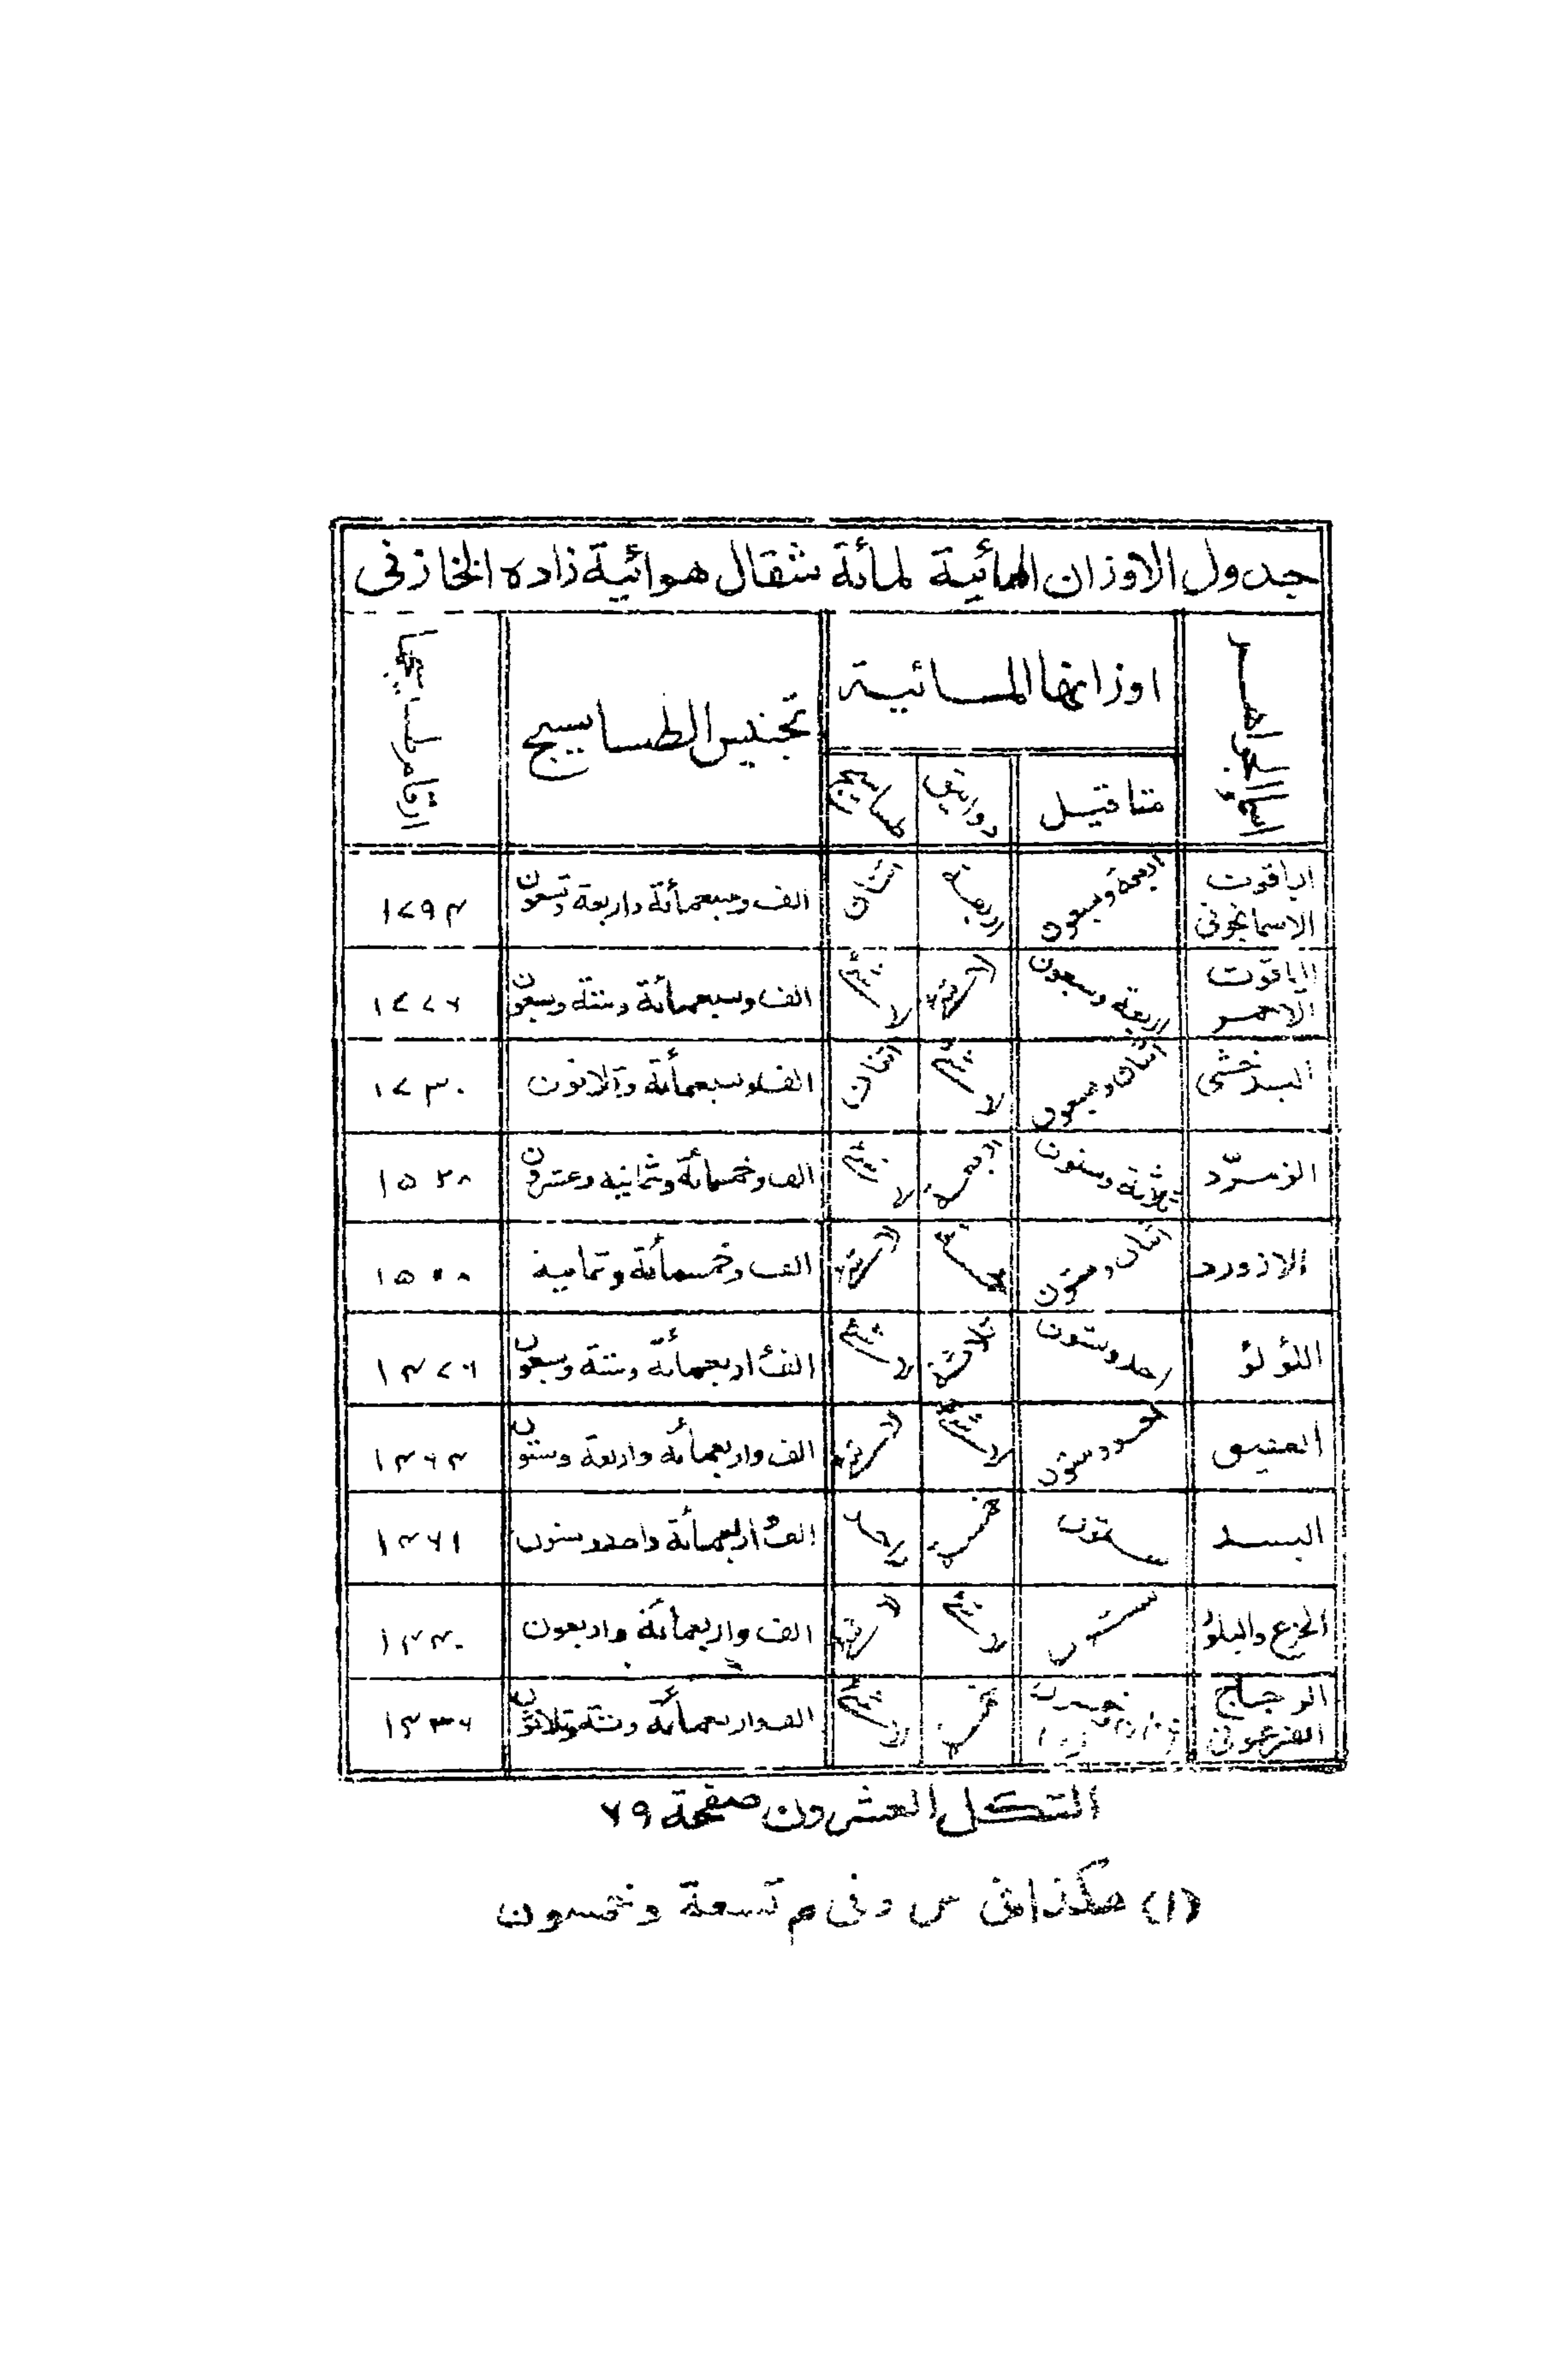 جدول الاوزان المائية لمائة مثقال هوائية زاده الخازنى
اسماء الجواهر اوزانها المائية تجنيس الطساسيج ارقام طساسيجها
مثاقيل دوانيق طساسيج
الياقوت الاسمانجونى اربعة وسبعون اربعة اثنان الف وسبعمائة واربعة وتسعون ١٧٩٤
الياقوت الاحمر اربعة وسبعون لا شئ لا شئ الف وسبعمائة وستة وسبعون ١٧٧٦
البدخشى اثنان وسبعون لا شئ اثنان الف وسبعمائة وثلاثون ١٧٣٠
الزمرّد ثلاثة وستون اربعة لا شئ الف وخمسمائة وثمانية وعشرون ١٥٢٨
الازورد اثنان وستون خمسة لا شئ الف وخمسمائة وثمانية ١٥٠٨
اللؤلؤ احد وستون ثلاثة لا شئ الف اربعمائة وستة وسبعون ١٤٧٦
العقيق احد وستون لا شئ لا شئ الف واربعمائة واربعة وستون ١٤٦٤
البسد ستون خمسة واحد الف اربعمائة واحد وستون ١٤٦١
الجزع والبلور ستون لا شئ لا شئ الف واربعمائة واربعون ١٤٤٠
الزجاج الفرعونى وخمسون (١) خمسة لا شئ الف واربعمائة وستة وثلاثون ١٤٣٦
الشكل العشرون صفحة ٧٩
(١) هكذا فى س وفى م تسعة وخمسون